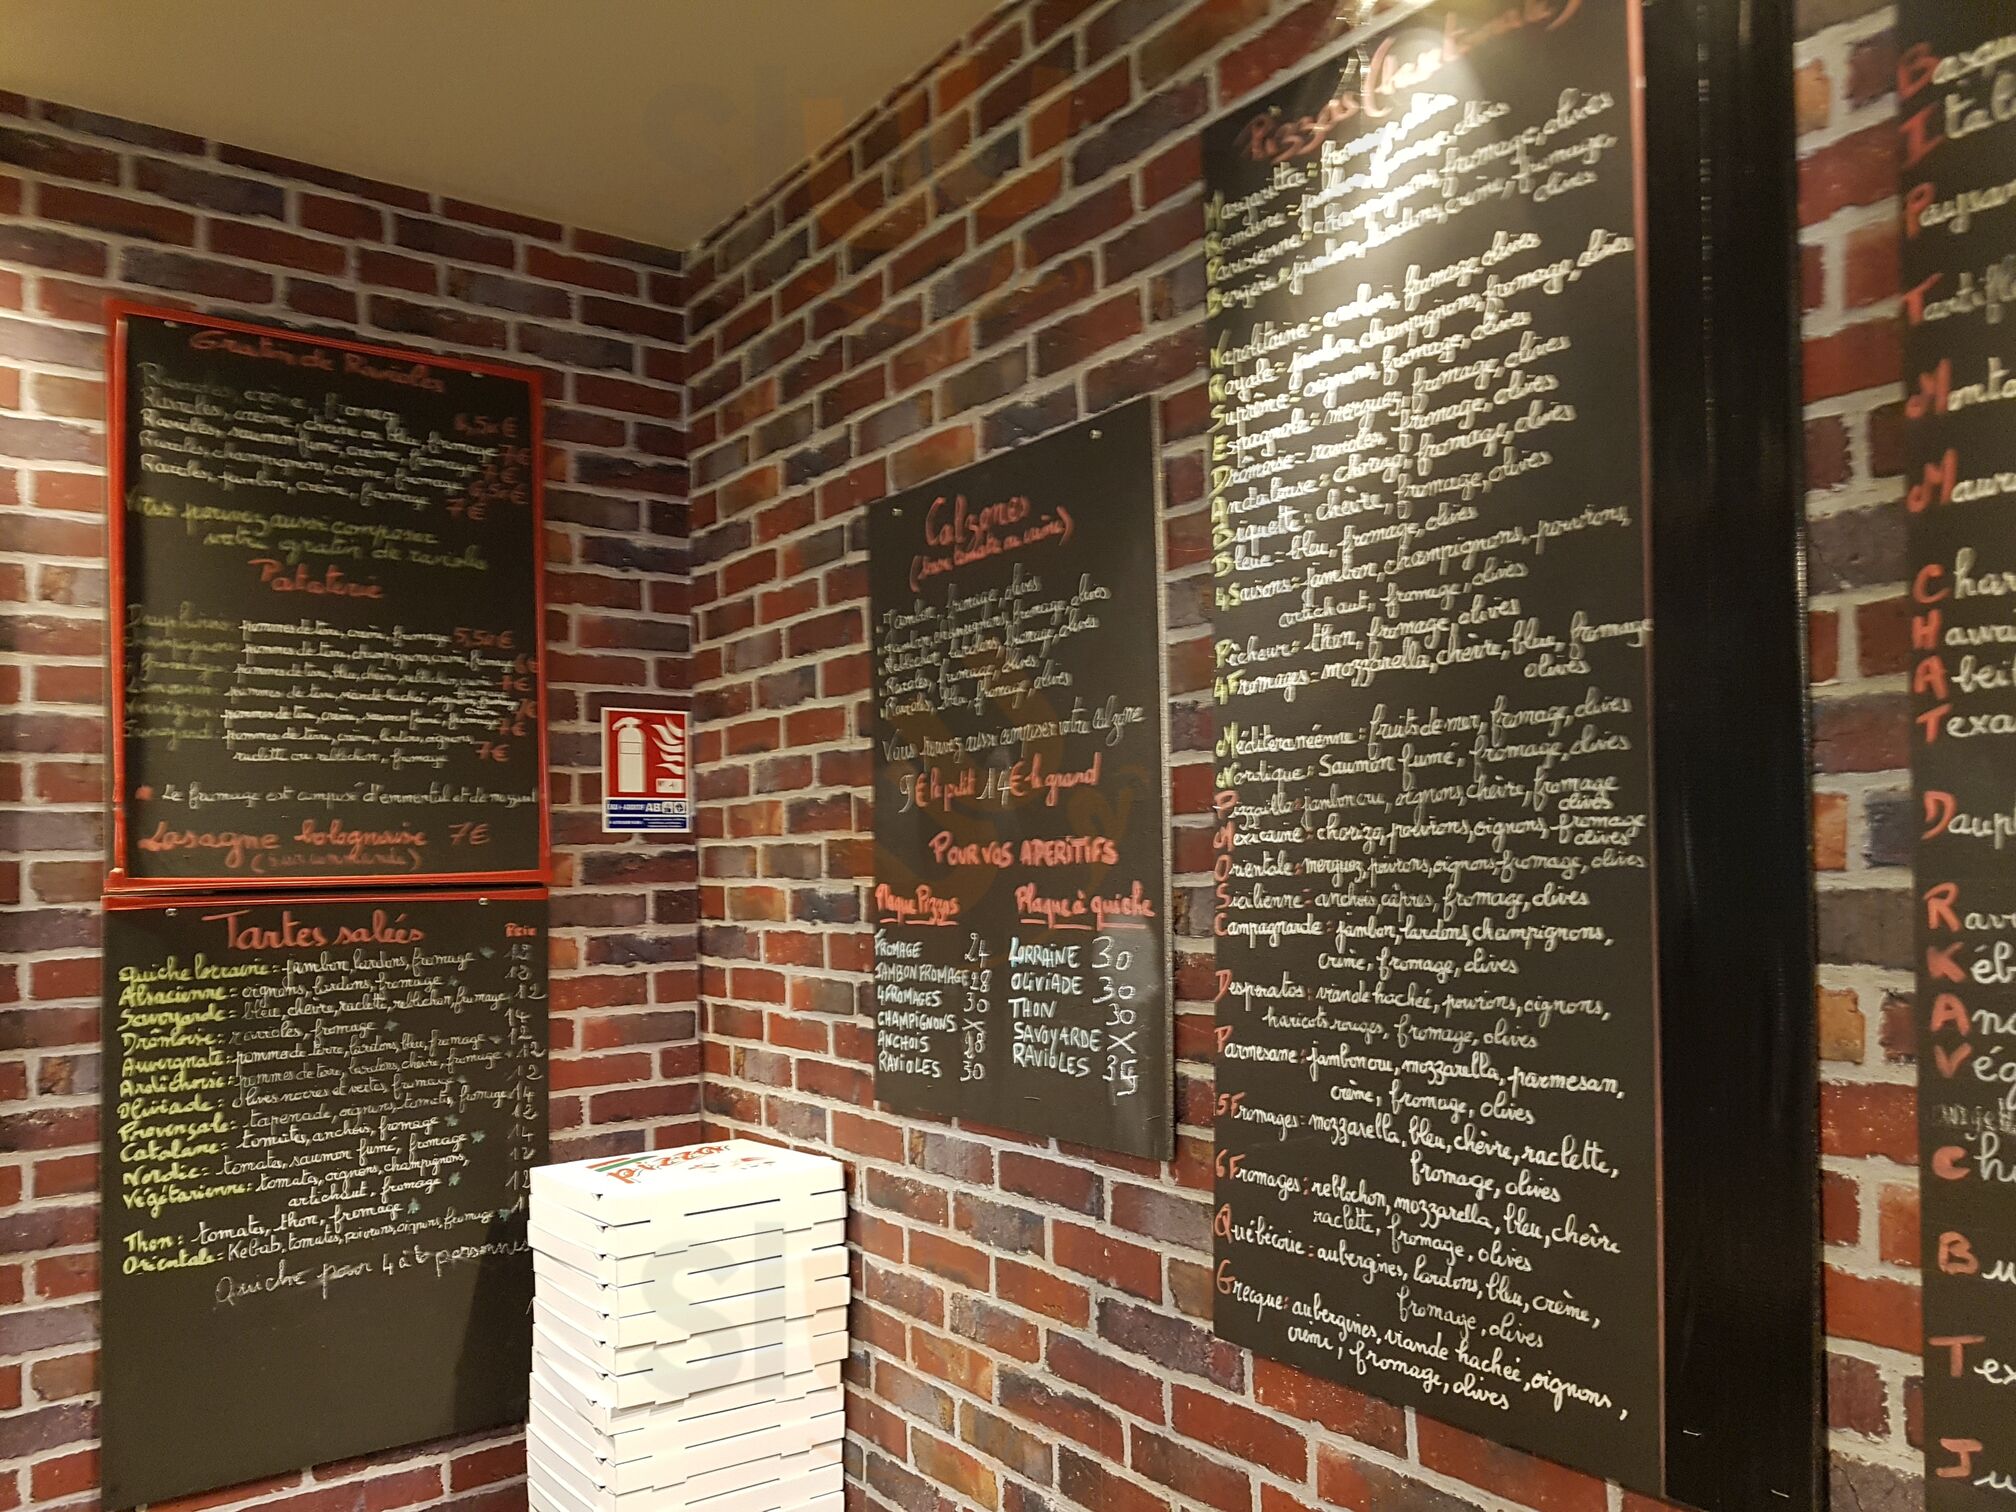 Gratin de Ravioles
Ravioles, crème, fromage 6,50€
Ravioles, crème, chèvre ou bleu, fromage 7€
Ravioles, saumon fumé, crème, fromage
Ravioles, champignons, crème, fromage
Ravioles, jambon, crème, fromage 7€
Vous pouvez aussi composer
votre gratin de ravioles
Pataterie
Dauphinois: pommes de terre, crème, fromage 5,50€
pommes de terre, champignons, crème, fromage 6€
pommes de terre, bleu, chèvre, reblochon, crème 7€
pommes de terre, viande hachée, fromage, crème 7€
Norvégien: pommes de terre, crème, saumon fumé, fromage 7€
Savoyard: pommes de terre, crème, lardons, oignons,
raclette ou reblochon, fromage 7€
* Le fromage est composé d'emmental et de mozzarel
Lasagne bolognaise 7€
(sur commande)
Tartes salées Prix
Quiche lorraine: jambon, lardons, fromage 12
Alsacienne: oignons, lardons, fromage 12
Savoyarde: bleu, chèvre, raclette, reblochon, fromage 12
Drômoise: ravioles, fromage 14
Auvergnate: pommes de terre, lardons, bleu, fromage 12
Ardéchoise: pommes de terre, lardons, chèvre, fromage 12
Oliviade: olives noires et vertes, fromage 12
Provençale: tapenade, oignons, tomates, fromage 14
Catalane: tomates, anchois, fromage 12
Nordic: tomates, saumon fumé, fromage 14
Végétarienne: tomates, oignons, champignons, 12
artichaut, fromage
Thon: tomates, thon, fromage 12
Orientale: Kebab, tomates, poivrons, oignons, fromage
Quiche pour 4 à 6 personnes
pizza
EAU + ADDITIF AB
Calzones
(base tomate ou crème)
Jambon, fromage, olives
Jambon, champignons, fromage, olives
Reblochon, lardons, fromage, olives
Ravioles, fromage, olives
Ravioles, bleu, fromage, olives
Vous pouvez aussi composer votre Calzone
9€ le petit 14€ le grand
POUR VOS APERITIFS
Plaque Pizzas Plaque à quiche
FROMAGE 24 LORRAINE 30
JAMBON FROMAGE 28 OLIVIADE 30
4 FROMAGES 30 THON 30
CHAMPIGNONS X SAVOYARDE X
ANCHOIS 28 RAVIOLES 35
RAVIOLES 30
Pizzas (base tomate)
Margarita: fromage, olives
Romaine: jambon, fromage, olives
Parisienne: champignons, fromage, olives
Bergère: jambon, lardons, crème, fromage,
olives
Napolitaine: anchois, fromage, olives
Royale: jambon, champignons, fromage, olives
Suprême: oignons, fromage, olives
Espagnole: merguez, fromage, olives
Drômoise: ravioles, fromage, olives
Andalouse: chorizo, fromage, olives
Biquette: chèvre, fromage, olives
Bleue: bleu, fromage, olives
4 Saisons: jambon, champignons, poivrons,
artichaut, fromage, olives
Pêcheur: thon, fromage, olives
4 Fromages: mozzarella, chèvre, bleu, fromage
olives
Méditeranéenne: fruits de mer, fromage, olives
Nordique: Saumon fumé, fromage, olives
Pizzaillo: jambon cru, oignons, chèvre, fromage
olives
Mexicaine: chorizo, poivrons, oignons, fromage
olives
Orientale: merguez, poivrons, oignons, fromage, olives
Sicilienne: anchois, câpres, fromage, olives
Campagnarde: jambon, lardons, champignons,
crème, fromage, olives
Desperatos: viande hachée, poivrons, oignons,
haricots rouges, fromage, olives
Parmesane: jambon cru, mozzarella, parmesan,
crème, fromage, olives
5 Fromages: mozzarella, bleu, chèvre, raclette,
fromage, olives
6 Fromages: reblochon, mozzarella, bleu, chèvre
raclette, fromage, olives
Québécoise: aubergines, lardons, bleu, crème,
fromage, olives
Grecque: aubergines, viande hachée, oignons,
crème, fromage, olives
Basqu
Ital
Paysan
Tartifl
Monta
Maure
Char
Hawa
Abeil
Texa
Daup
Rav
Kéb
An
Vég
Ch
Bu
Tex
Ju